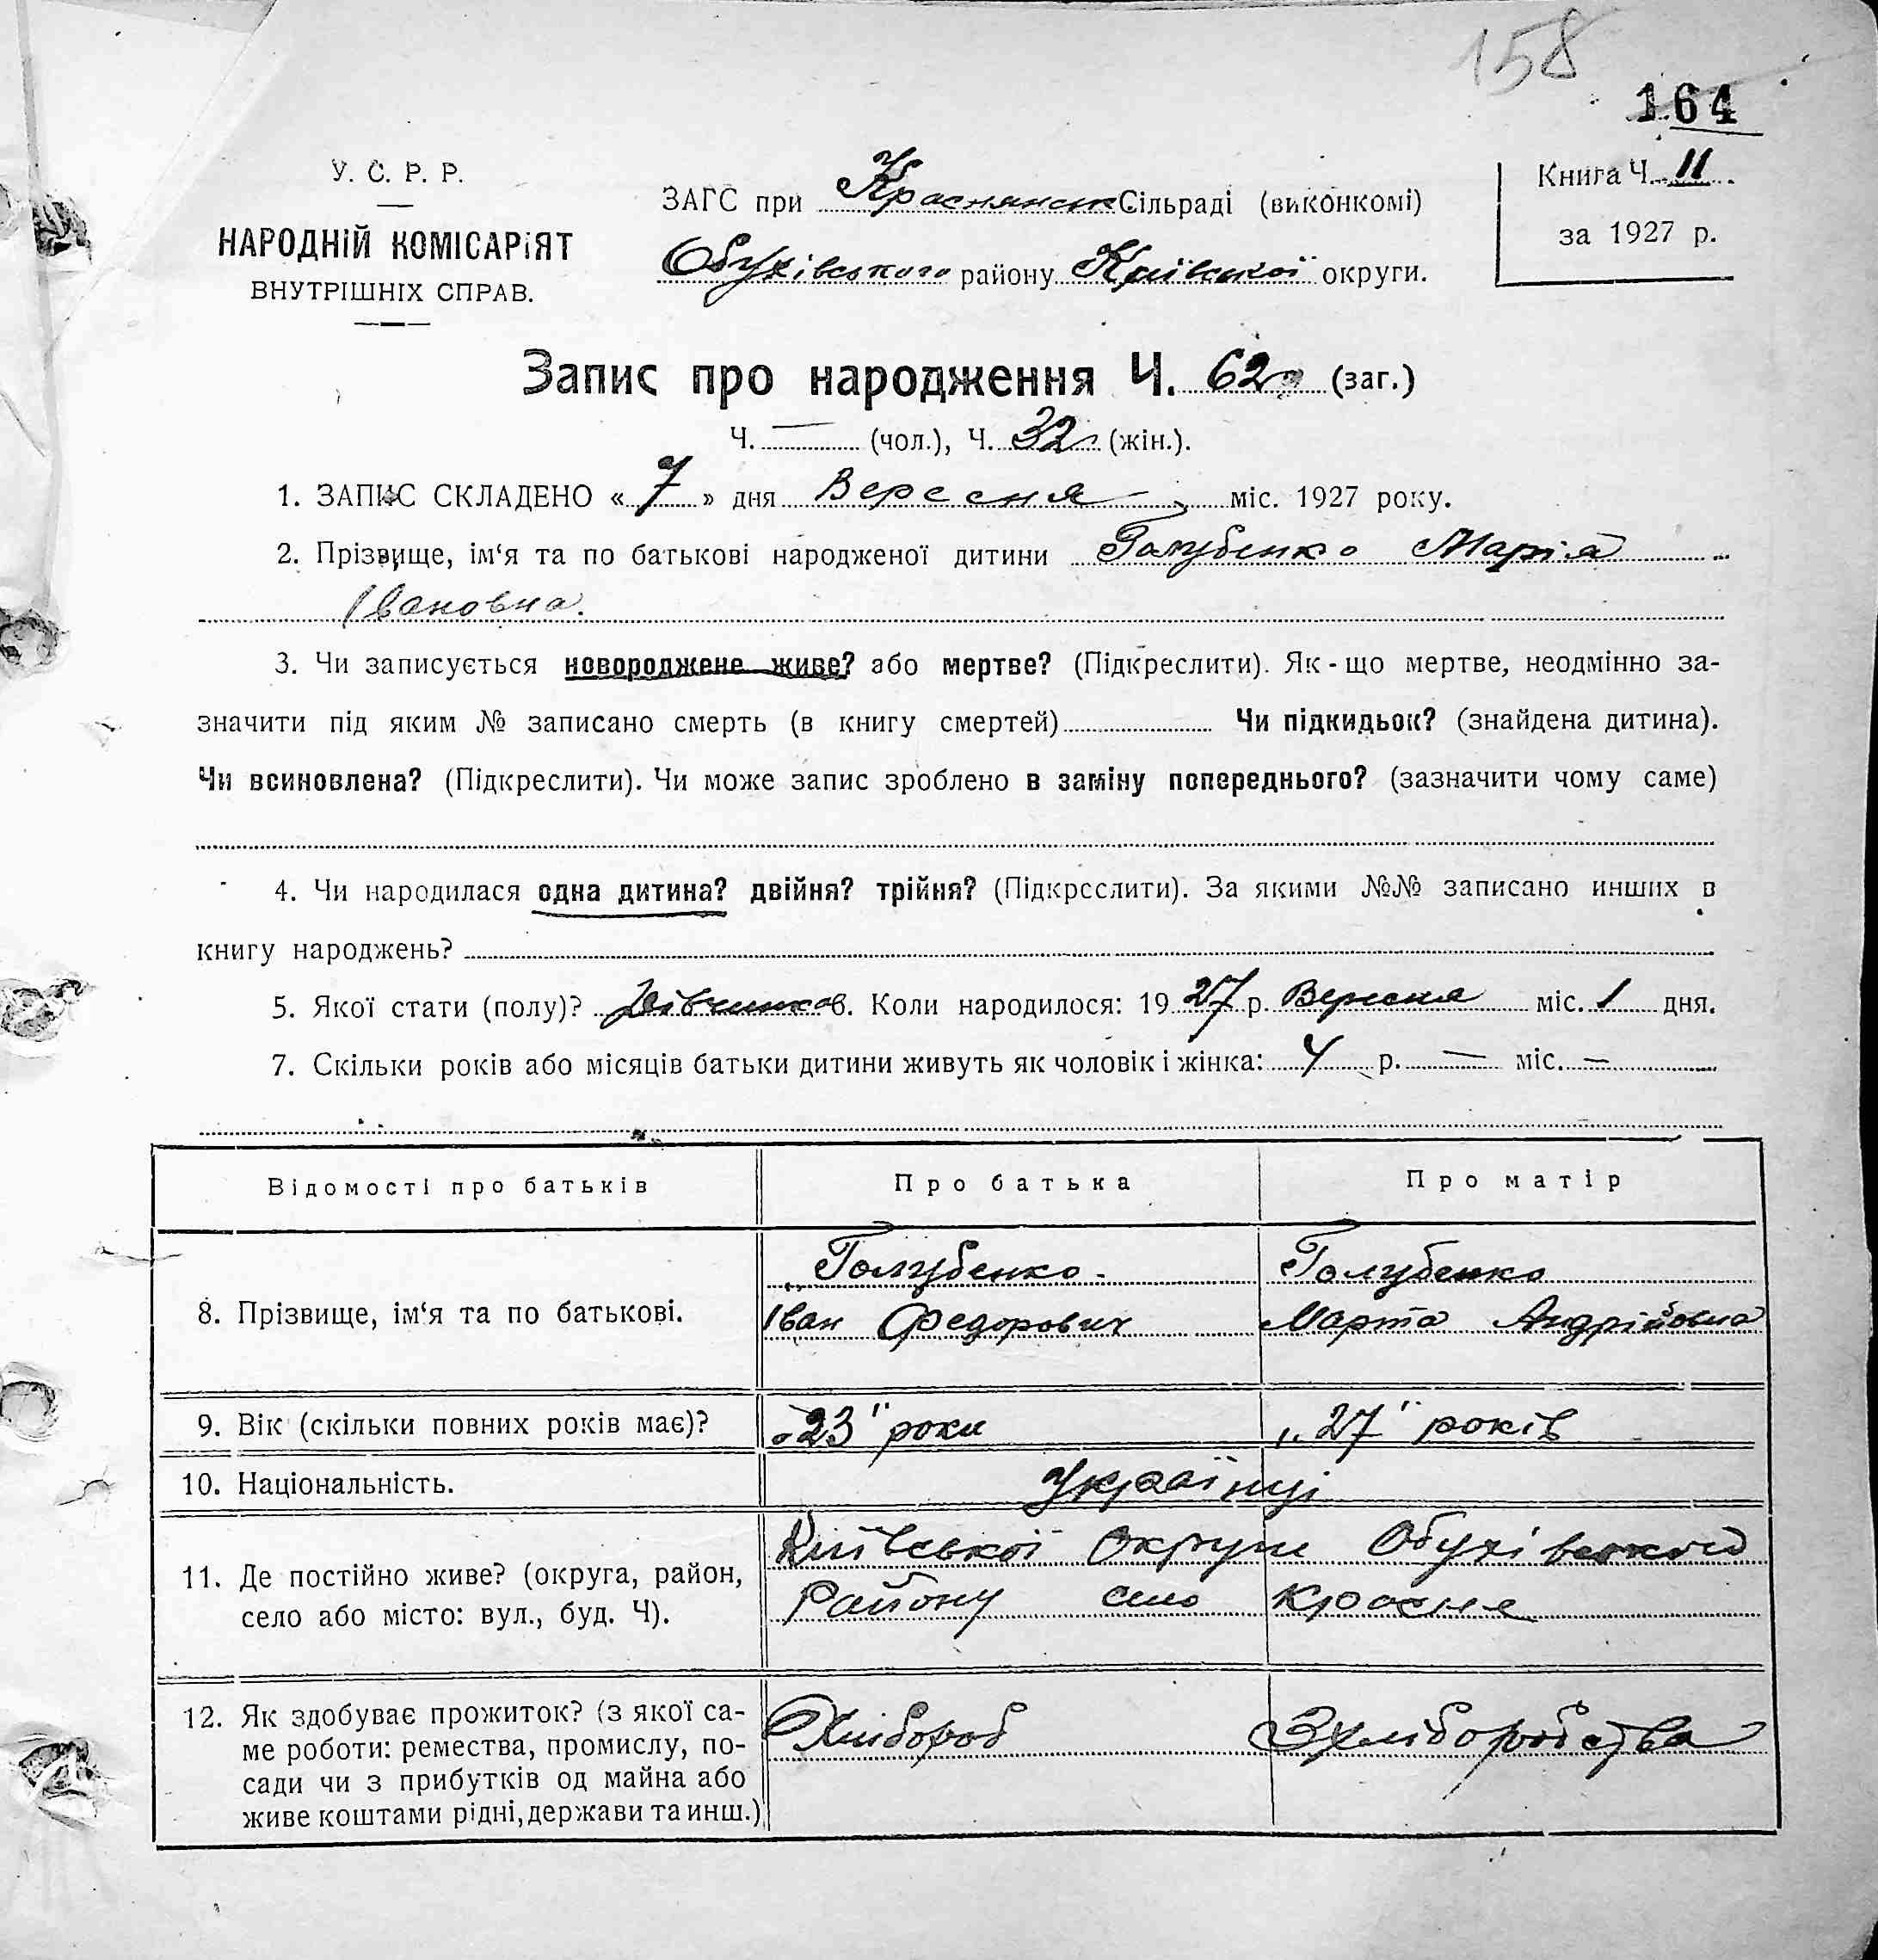 158
164
У. С. Р. Р.
НАРОДНІЙ КОМІСАРІЯТ
ВНУТРІШНІХ СПРАВ.
ЗАГС при Краснянськ Сільраді (виконкомі)
Обухівського району Київської округи.
Книга Ч. 11
за 1927 р.
Запис про народження Ч. 62 (заг.)
Ч. — (чол.), Ч. 32 (жін.).
1. ЗАПИС СКЛАДЕНО « 7 » дня Вересня міс. 1927 року.
2. Прізвище, ім‘я та по батькові народженої дитини Голубенко Марія
Івановна.
3. Чи записується новороджене живе? або мертве? (Підкреслити). Як-що мертве, неодмінно за-
значити під яким № записано смерть (в книгу смертей) Чи підкидьок? (знайдена дитина).
Чи всиновлена? (Підкреслити). Чи може запис зроблено в заміну попереднього? (зазначити чому саме)
4. Чи народилася одна дитина? двійня? трійня? (Підкреслити). За якими №№ записано инших в
книгу народжень?
5. Якої стати (полу)? 6. Коли народилося: 1927 р. Вересня міс. 1 дня.
7. Скільки років або місяців батьки дитини живуть як чоловік і жінка: 4 р. — міс. —
Відомості про батьків Про батька Про матір
8. Прізвище, ім‘я та по батькові.
Голубенко Іван Федорович
Голубенко Марта Андрійовна
9. Вік (скільки повних років має)? „23" роки „27" років
10. Національність. Українці
11. Де постійно живе? (округа, район,
село або місто: вул., буд. Ч).
Київської Округи Обухівського
Району село Красне
12. Як здобуває прожиток? (з якої са-
ме роботи: ремества, промислу, по-
сади чи з прибутків од майна або
живе коштами рідні, держави та инш.)
Хлібороб
З хліборобства